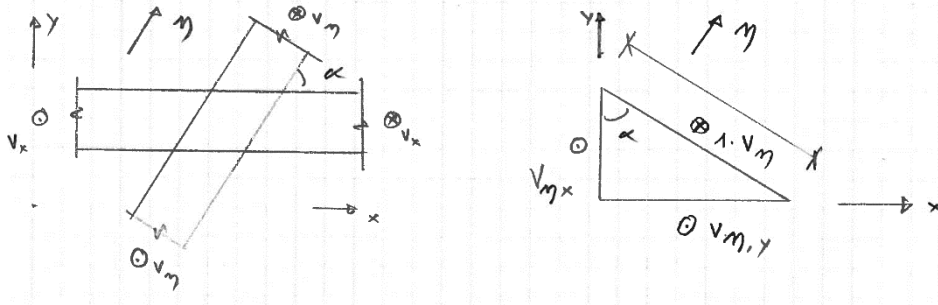 y
η
⊗ v_η
α
⊙
v_x
⊗
v_x
x
⊙ v_η
y
η
α
⊗ 1. v_η
⊙
v_ηx
⊙ v_η,y
x